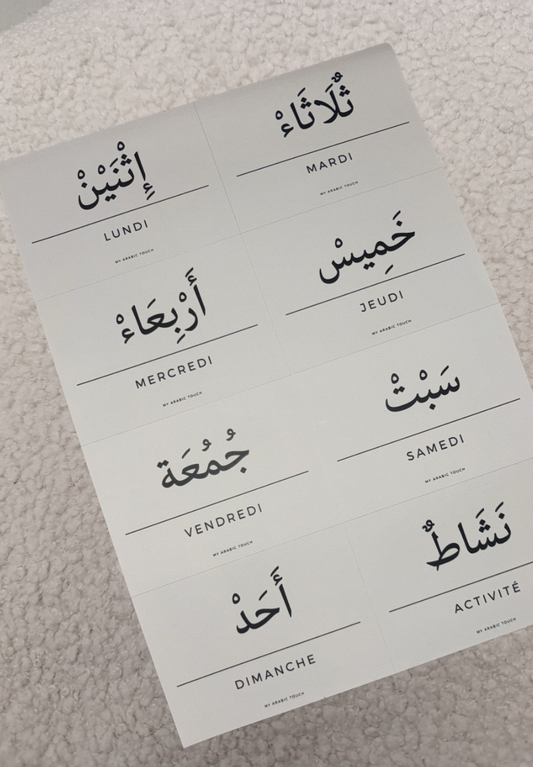 إِثْنَيْنْ
LUNDI
MY ARABIC TOUCH
ثُلَاثَاءْ
MARDI
MY ARABIC TOUCH
أَرْبِعَاءْ
MERCREDI
MY ARABIC TOUCH
خَمِيسْ
JEUDI
MY ARABIC TOUCH
جُمُعَة
VENDREDI
MY ARABIC TOUCH
سَبْتْ
SAMEDI
MY ARABIC TOUCH
أَحَدْ
DIMANCHE
MY ARABIC TOUCH
نَشَاطٌ
ACTIVITÉ
MY ARABIC TOUCH